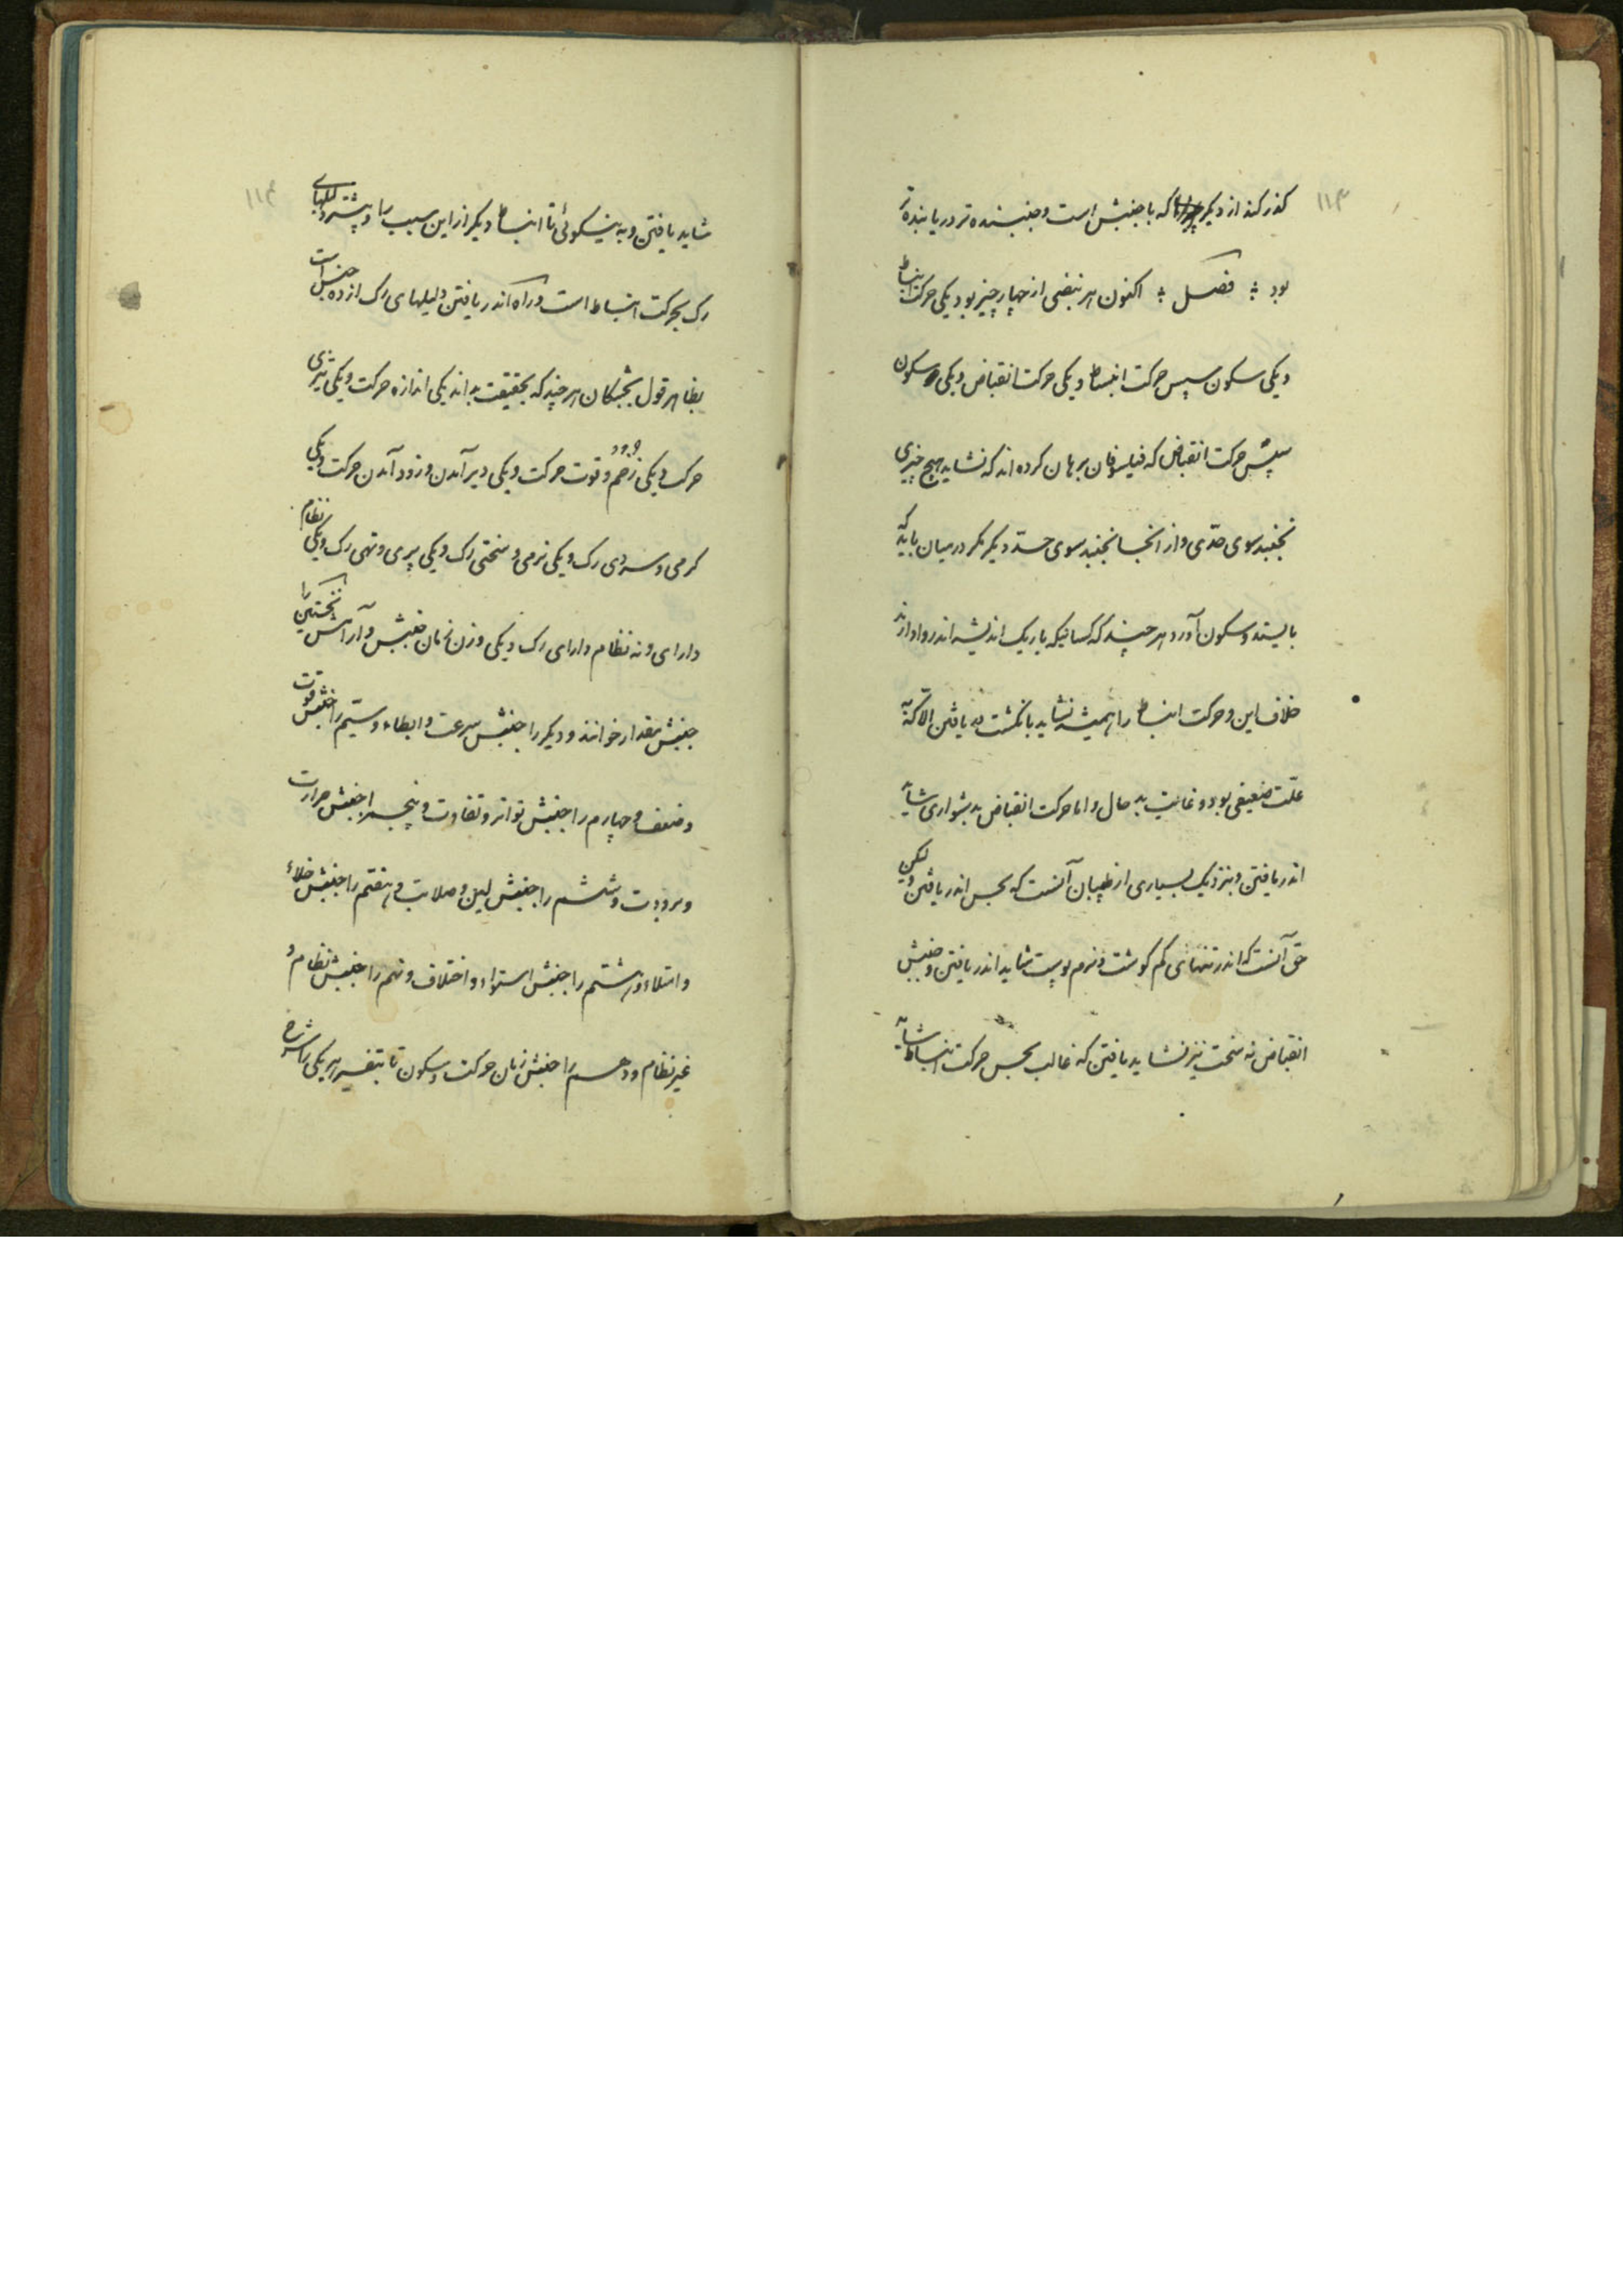 ۱۱۳
گذر کند از دیگر که با جنبش است و جنبنده‌تر دریابنده‌تر
بود ؞ فصل ؞ اکنون هر نبضی از چهار چیز بود یکی حرکت انبساط
و یکی سکون سپس حرکت انبساط و یکی حرکت انقباض و یکی سکون
سپس حرکت انقباض که فیلسوفان برهان کرده‌اند که نشاید هیچ چیزی
بجنبد سوی حدی و از آنجا بجنبد سوی حد دیگر مگر در میان باید که
بایستد و سکون آورد هر چند که کسانیکه باریک اندیشه‌اند روا دارند
خلاف این و حرکت انبساط را همیشه نشاید بانگشت یافتن الا که
علت ضعیفی بود و غایت بدحال و اما حرکت انقباض بدشواری شاید
اندر یافتن و بنزدیک بسیاری از طبیبان آنست که بحس اندر یافتن ولیکن
حق آنست که اندر تنهای کم گوشت و نرم پوست شاید اندر یافتن و جنبش
انقباض نه سخت نیز نشاید یافتن که غالب بحس حرکت انبساط شاید
۱۱۴
شاید یافتن و به نیکوئی تا انبساط دیگر از این سبب را و بیشتر دلیلهای
رگ بحرکت انبساط است و راه اندر یافتن دلیلهای رگ از ده جنس است
بظاهر قول بجشکان هر چند که بحقیقت نه‌اند یکی اندازه حرکت و یکی تیزی
حرکت و یکی زخم و قوت حرکت و یکی دیر آمدن و زود آمدن حرکت و یکی
گرمی و سردی رگ و یکی نرمی و سختی رگ و یکی پری و تهی رگ و یکی نظام
دارای و نه نظام دارای رگ و یکی وزن زمان جنبش و آرامش نخستین را
جنبش مقدار خوانند و دیگر را جنبش سرعت و ابطاء و سیم را جنبش قوت
و ضعف و چهارم را جنبش تواتر و تفاوت و پنجم را جنبش حرارت
و برودت و ششم را جنبش لین و صلابت و هفتم را جنبش خلاء
و امتلاء و هشتم را جنبش استواء و اختلاف و نهم را جنبش نظام و
غیر نظام و دهم را جنبش زمان حرکت و سکون تا بتفسیر هر یکی را شرح